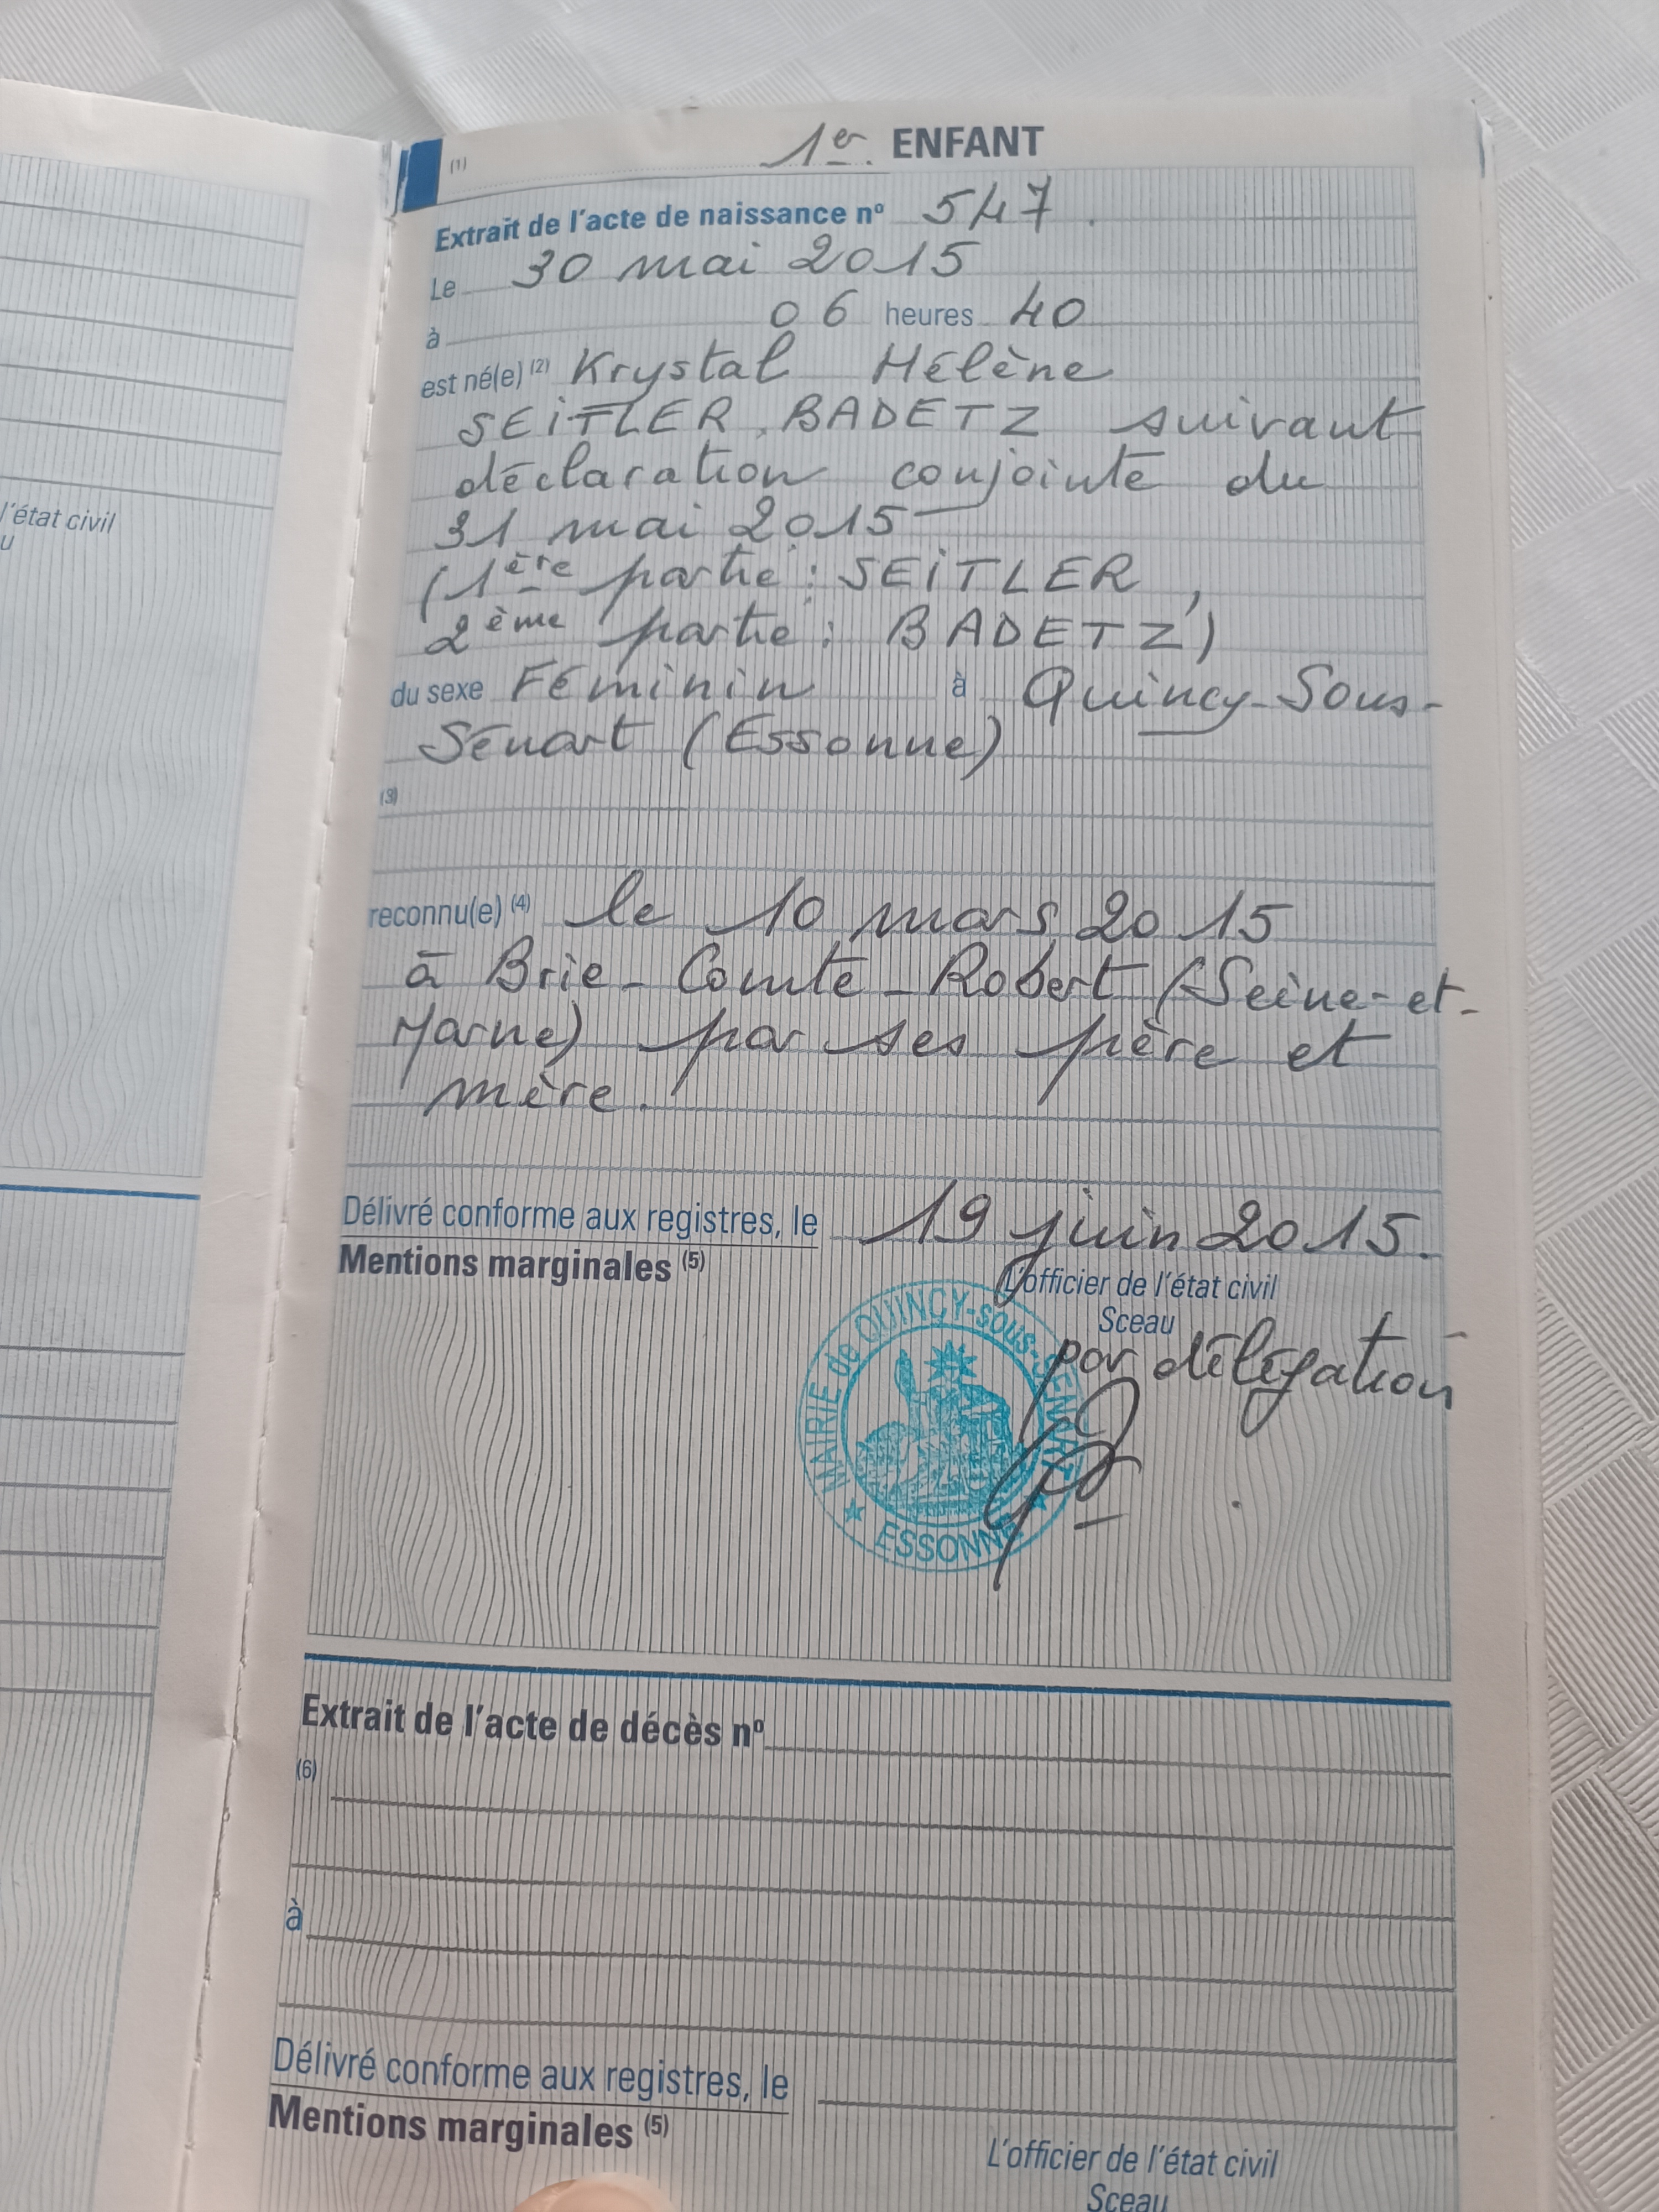 l'état civil
u
(1) 1er. ENFANT
Extrait de l'acte de naissance nº 547.
Le 30 mai 2015
à 06 heures 40
est né(e) (2) Krystal Hélène
SEITLER BADETZ suivant
déclaration conjointe du
31 mai 2015
(1ère partie : SEITLER,
2ème partie : BADETZ)
du sexe Féminin à Quincy-Sous-
Sénart (Essonne)
(3)
reconnu(e) (4) le 10 mars 2015
à Brie-Comte-Robert (Seine-et-
Marne) par ses père et
mère.
Délivré conforme aux registres, le 19 juin 2015.
Mentions marginales (5)
L'officier de l'état civil
Sceau
par délégation
MAIRIE de QUINCY-sous-SENART
ESSONNE
Extrait de l'acte de décès nº
(6)
à
Délivré conforme aux registres, le
Mentions marginales (5)
L'officier de l'état civil
Sceau